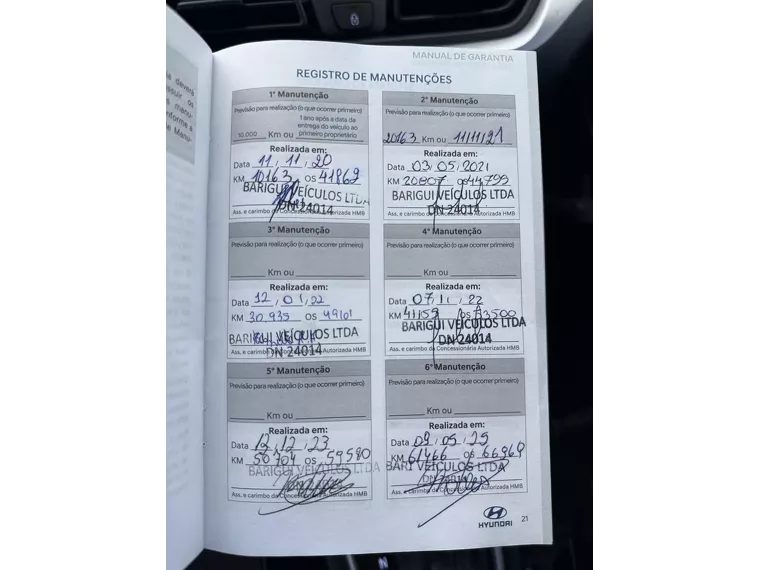 MANUAL DE GARANTIA
REGISTRO DE MANUTENÇÕES
1ª Manutenção
Previsão para realização (o que ocorrer primeiro)
10.000 Km ou 1 ano após a data da entrega do veículo ao primeiro proprietário
Realizada em:
Data 11, 11, 20
KM 10163 OS 41869
BARIGUI VEÍCULOS LTDA
DN 24014
Ass. e carimbo da Concessionária Autorizada HMB
2ª Manutenção
Previsão para realização (o que ocorrer primeiro)
20163 Km ou 11/11/21
Realizada em:
Data 03, 05, 2021
KM 20807 OS 44799
BARIGUI VEÍCULOS LTDA
DN 24014
Ass. e carimbo da Concessionária Autorizada HMB
3ª Manutenção
Previsão para realização (o que ocorrer primeiro)
Km ou
Realizada em:
Data 12, 01, 22
KM 30.935 OS 49101
BARIGUI VEÍCULOS LTDA
DN 24014
Ass. e carimbo da Concessionária Autorizada HMB
4ª Manutenção
Previsão para realização (o que ocorrer primeiro)
Km ou
Realizada em:
Data 07, 11, 22
KM 41159 OS 53500
BARIGUI VEÍCULOS LTDA
DN 24014
Ass. e carimbo da Concessionária Autorizada HMB
5ª Manutenção
Previsão para realização (o que ocorrer primeiro)
Km ou
Realizada em:
Data 12, 12, 23
KM 50704 OS 59590
BARIGUI VEÍCULOS LTDA
Ass. e carimbo da Concessionária Autorizada HMB
6ª Manutenção
Previsão para realização (o que ocorrer primeiro)
Km ou
Realizada em:
Data 09, 05, 25
KM 61466 OS 66969
BARI VEÍCULOS LTDA
Ass. e carimbo da Concessionária Autorizada HMB
HYUNDAI
21